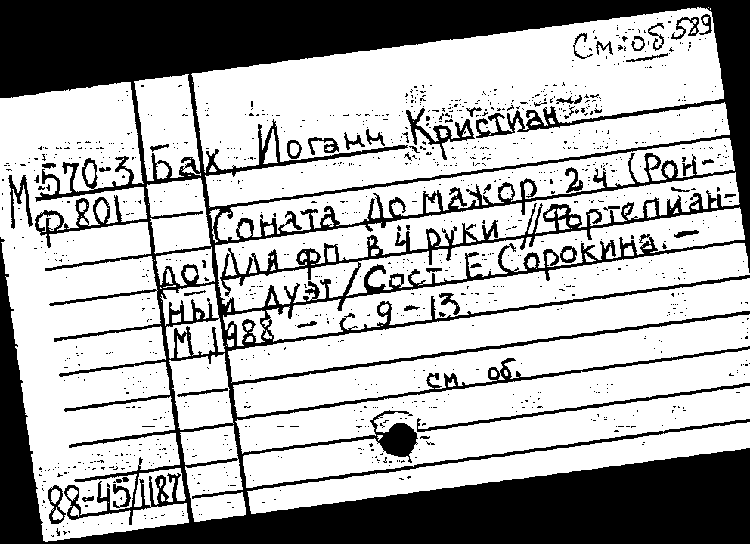 См. об 589
М 570-3 Бах, Иоганн Кристиан
ф.801
Соната До мажор: 2 ч. (Рон-
до): Для фп. в 4 руки // Фортепиан-
ный дуэт / Сост. Е. Сорокина. –
М., 1988 – с. 9-13.
см. об.
88-45/1187